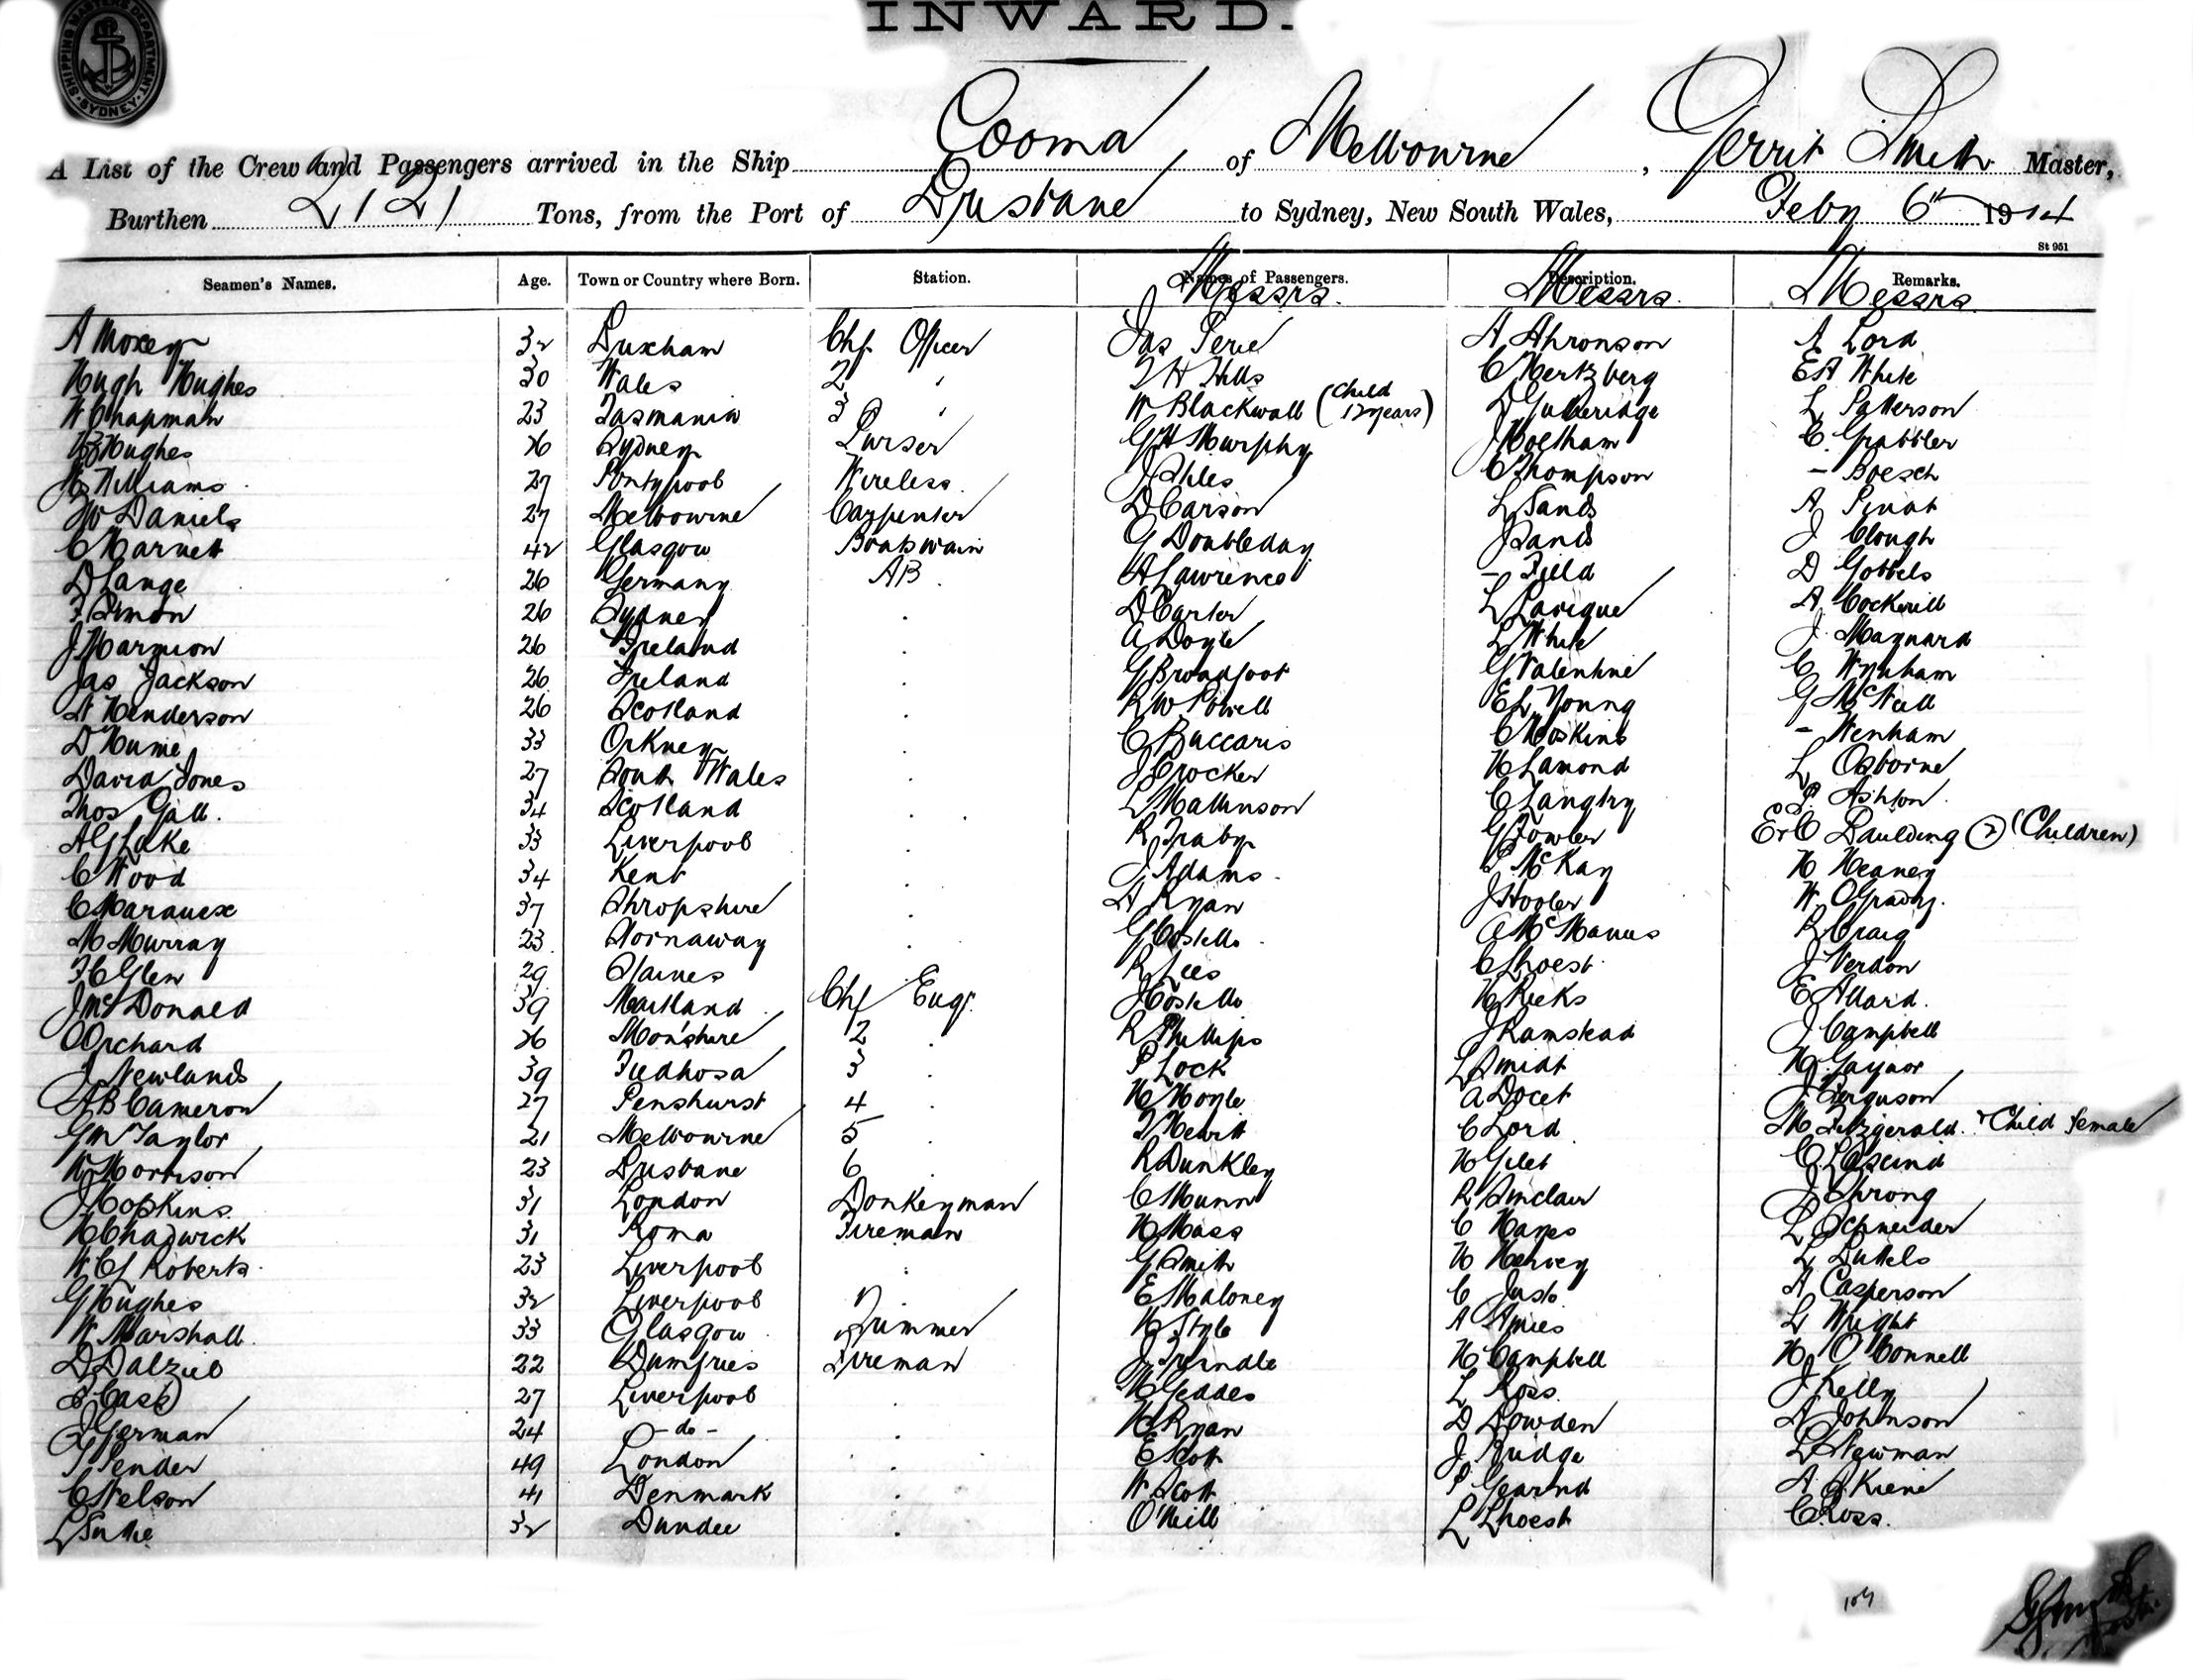 INWARD.
SHIPPING MASTERS DEPARTMENT SYDNEY
A List of the Crew and Passengers arrived in the Ship Cooma of Melbourne, Gerrit Smith Master,
Burthen 2121 Tons, from the Port of Brisbane to Sydney, New South Wales, Feby 6th 1914
St 951
Seamen's Names. Age. Town or Country where Born. Station. Names of Passengers. Description. Remarks.
Messrs. Messrs. Messrs.
A Moxey 32 Chf Officer Jas A Ahronson A Lord
Hugh Hughes 30 Wales 2 " C Hertzberg EA White
W Chapman 23 Tasmania 3 " W Blackwall (Child 12 years) D Gutteridge L Patterson
Hughes 26 Sydney Purser GH Murphy J Holtham C Grabbler
Williams 27 Pontypool Wireless J Isles C Thompson - Boesch
W Daniels 27 Melbourne Carpenter D Carson L Sands A Pinat
C Harnett 42 Glasgow Boatswain G Doubleday J Sands J Clough
D Lange 26 Germany AB A Lawrence - Field D Gobbels
F Simon 26 Sydney . D Carter L Larique A Cockerill
J Marmion 26 Ireland . A Doyle L White J Maynard
Jas Jackson 26 Ireland . G Broadfoot G Valentine C Wynham
W Henderson 26 Scotland . R W Powell E L Young G McNeill
D Hume 33 Orkney . C Baccaris C Hoskins - Wenham
David Jones 27 South Wales . J Crocker H Lamond L Osborne
Thos Gall. 34 Scotland . L Mallinson C Langtry P Ashton.
A G Lake 33 Liverpool . R Traby G Fowler E & C Paulding (2) (Children)
C Wood 34 Kent . J Adams P McKay H Heaney
C 37 Shropshire . A Ryan J Hooler W OGrady.
M Murray 23 Stornaway . G Costello A McManus R Craig
F C Glen 29 Staines . R Lees C Lhoest J Verdon
J McDonald 39 Maitland Chf Engr. J Costello H Ricks E Allard.
O Orchard 26 Mon'shire 2 . R Phillips J Ramstead J Campbell
J Newlands 39 3 P Lock L Smidt H Gaynor
A B Cameron 27 Penshurst 4 . H Hoyle A Docet J Ferguson
G W Taylor 21 Melbourne 5 . T Hewitt C Lord M Fitzgerald. & Child female
W Morrison 23 Brisbane 6 . R Dunkley H Gilet C
J Hopkins 31 London Donkeyman C Munn R Sinclair J Strong
H Chadwick 31 Roma Fireman H Mass C Hayes L Schneider
W C J Roberts 23 Liverpool . G Smith H Hervey L Duttels
G Hughes 32 Liverpool " E Maloney C Justo A Casperson
W Marshall 33 Glasgow Trimmer H Style A Amies L Wright
D Dalziel 22 Dumfries Fireman J Trindle H Campbell H O'Connell
Cash 27 Liverpool . H Geddes L Ross. J Kelly
J German 24 - do - . H Ryan D Dowden A Johnson
J Pender 49 London . E Scott J Rudge L Newman
C Nelson 41 Denmark . W Scott P A Kiene
L 32 Dundee . O'Neill L Lhoest C Ross.
104